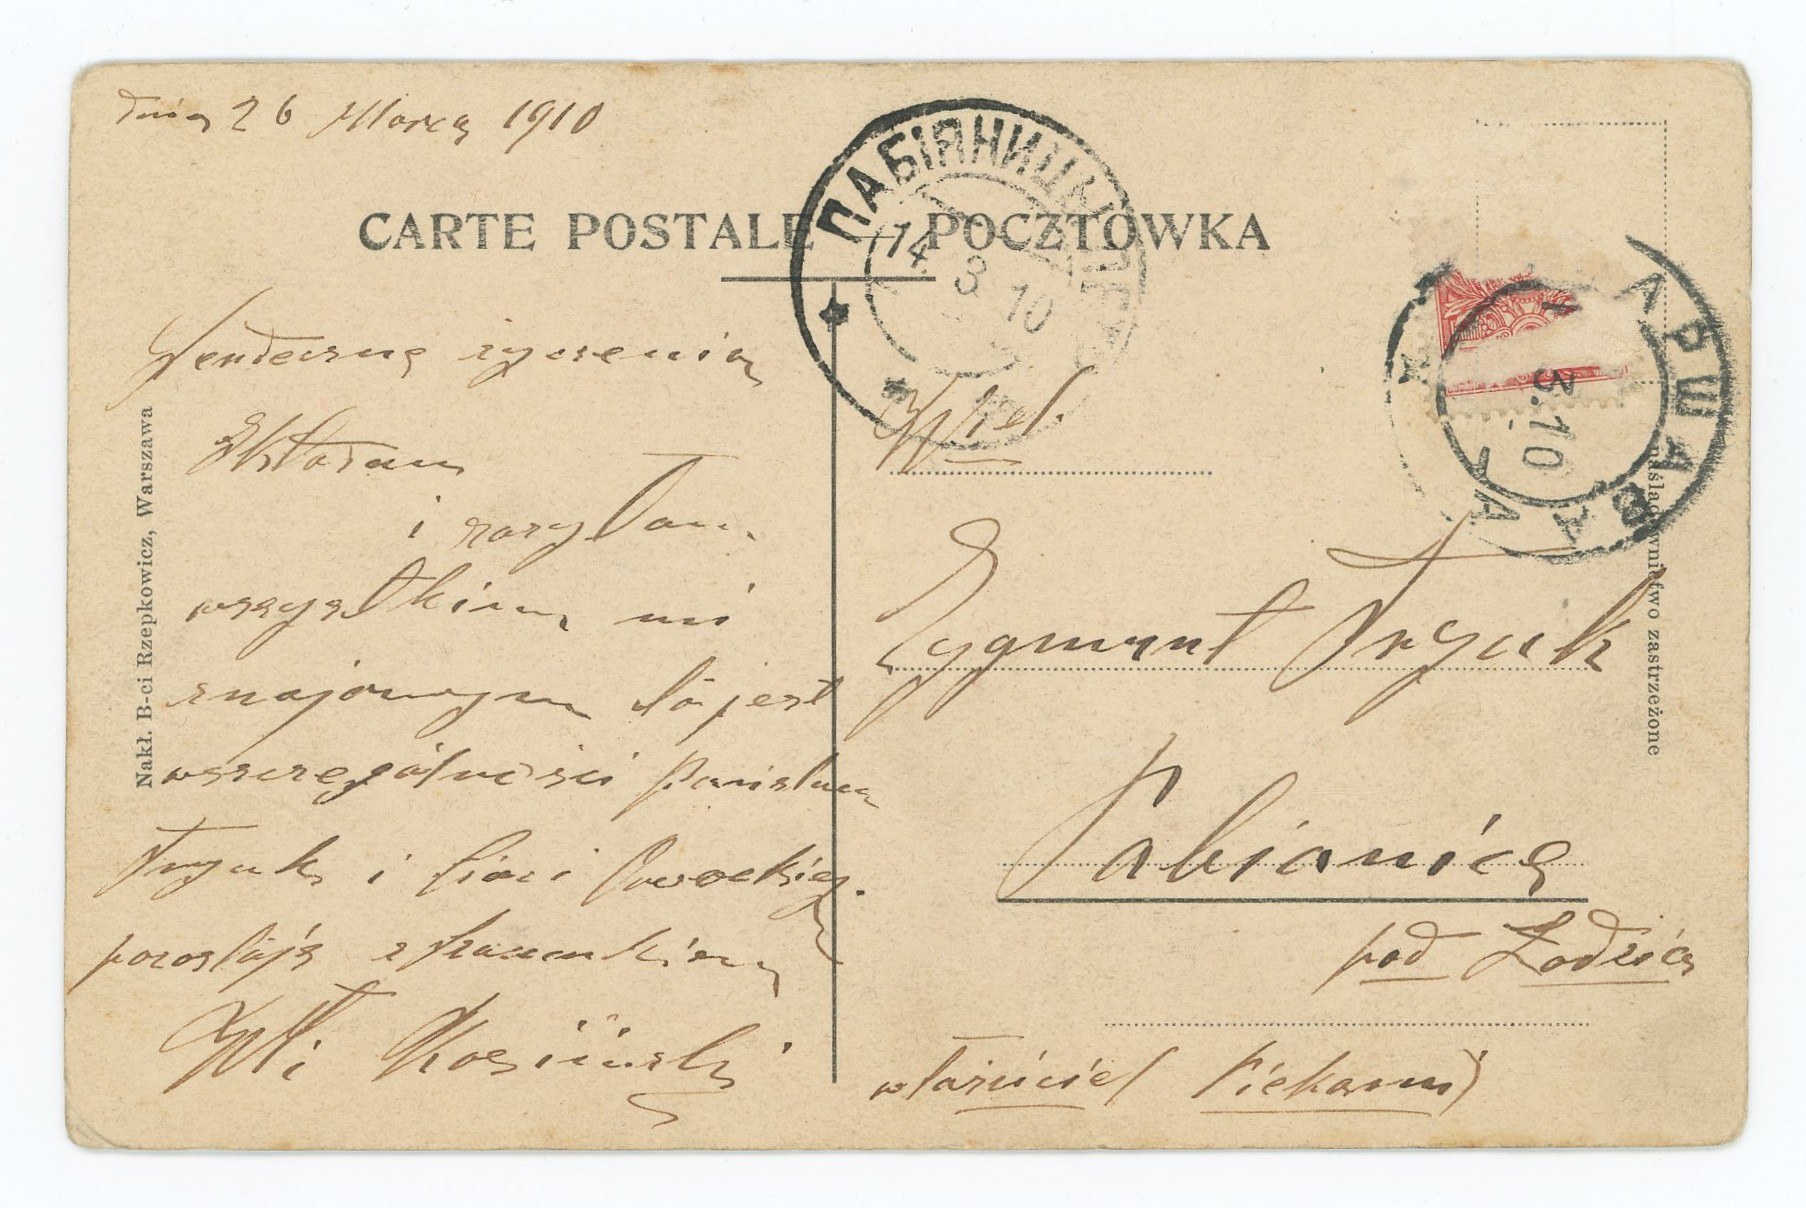 dnia 26 Marca 1910
CARTE POSTALE — POCZTÓWKA
ПАБІЯНИЦК
14 3 10
ВАРШАВА
3.10
Serdeczne życzenia
składam
i zasyłam
wszystkim mi
znajomym to jest
wszczególności Państwu
Tryuk i
pozostaję z szacunkiem
Wł. Kosiński
Wiel.
Zygmunt Tryuk
Pabianice
pod Łodzią
właściciel Piekarni
Nakł. B-ci Rzepkowicz, Warszawa
naśladownictwo zastrzeżone